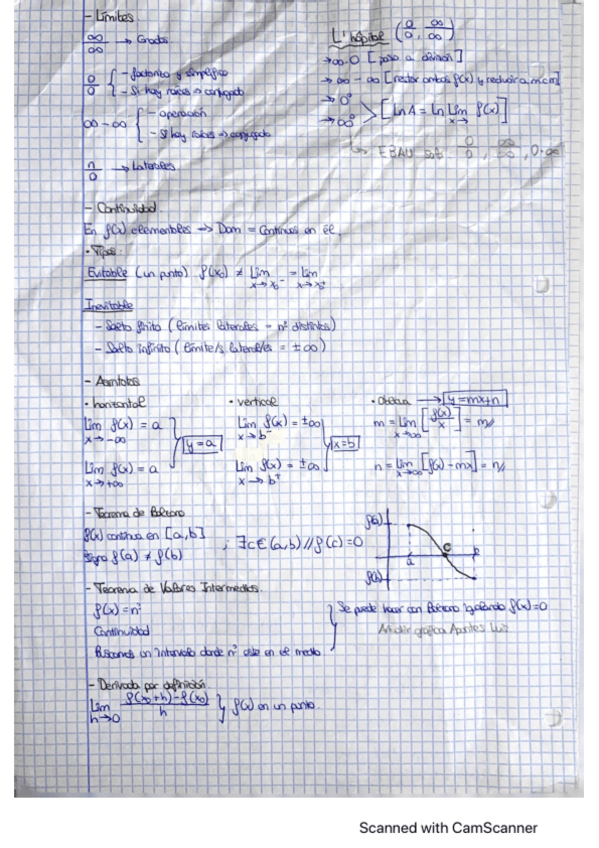 - Límites.
∞/∞ → Grados
0/0 { - factorizo y simplifico
- Si hay raíces ⇒ conjugado
∞ - ∞ { - operación
- Si hay raíces ⇒ conjugado
n/0 → Laterales.
L'hôpital (0/0, ∞/∞)
→ ∞·0 [paso a división]
→ ∞ - ∞ [restar ambas f(x) y reducir a mcm]
→ 0⁰
→ ∞⁰ > [Ln A = Ln Lim x→ f(x)]
↳ EBAU sólo 0/0, ∞/∞, 0·∞
- Continuidad.
En f(x) elementales → Dom = Continuas en él.
• Tipos:
Evitable (un punto) f(x₀) ≠ Lim x→x₀⁻ = Lim x→x₀⁺
Inevitable
- Salto finito (límites laterales = nº distintos)
- Salto infinito (límite/s lateral/es = ±∞)
- Asíntotas
• horizontal
Lim x→-∞ f(x) = a
Lim x→+∞ f(x) = a } y = a
• vertical
Lim x→b⁻ f(x) = ±∞
Lim x→b⁺ f(x) = ±∞ } x=b
• Oblicua → y = mx+n
m = Lim x→∞ [f(x)/x] = m//
n = Lim x→∞ [f(x) - mx] = n//
- Teorema de Bolzano
f(x) continua en [a,b]
Signo f(a) ≠ f(b) ; ∃c∈(a,b) // f(c)=0
f(a)
a
c
b
f(b)
- Teorema de Valores Intermedios.
f(x)=nº
Continuidad
Buscamos un intervalo donde nº este en el medio
} Se puede hacer con Bolzano igualando f(x)=0
Añadir gráfica Apuntes Luis
- Derivada por definición
Lim h→0 f(x₀+h)-f(x₀)/h } f(x) en un punto.
Scanned with CamScanner